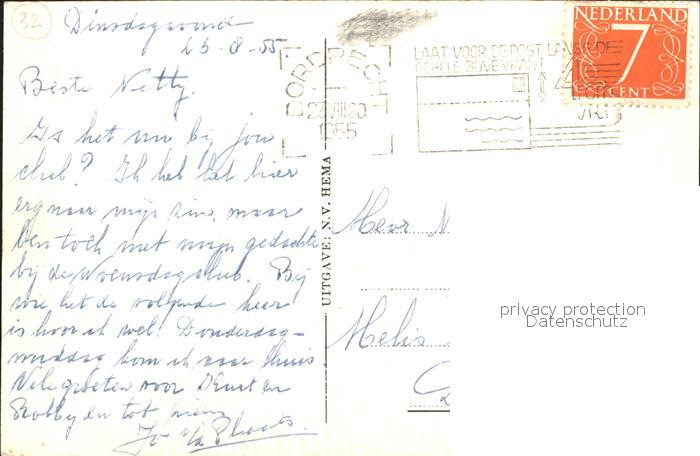 32
Dinsdagavond
23-8-55.
Beste Netty.
Is het nu bij jou
club? Ik heb het hier
erg naar mijn zin, maar
ben toch met mijn gedachte
bij de Woensdagclub. Bij
wie het de volgende keer
is hoor ik wel. Donderdag-
middag kom ik naar huis
Vele groeten voor en
Robby en tot ziens
Jo v/d
UITGAVE: N.V. HEMA
DORDRECHT
VIII 20
1955
LAAT VOOR DE POST LANGS DE
GEHELE BOVENKANT
NEDERLAND
7
CENT
Mevr N
Melis
privacy protection
Datenschutz